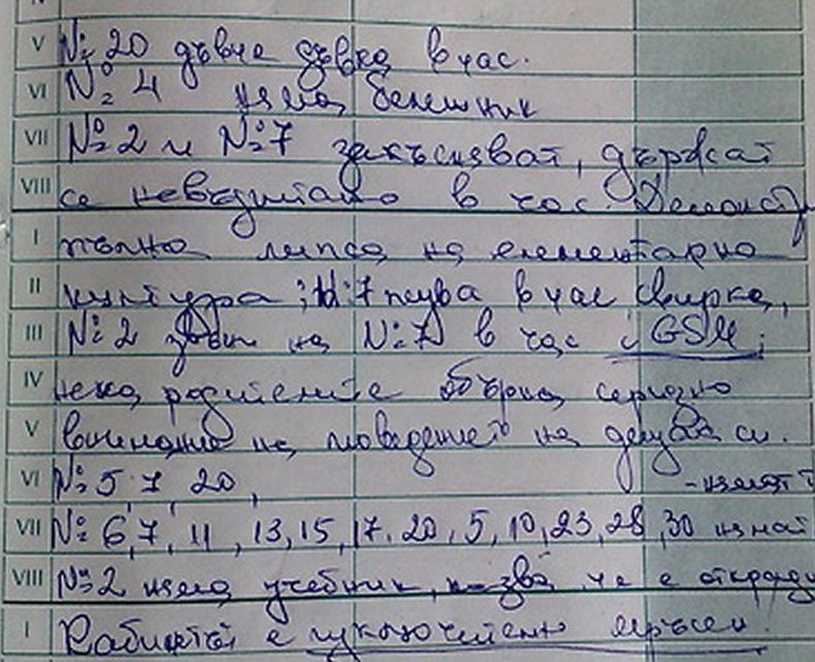 V № 20 дъвче дъвка в час.
VI № 4 няма бележник
VII № 2 и № 7 закъсняват, държат
VIII се невъзпитано в час. Демонстр
I пълна липса на елементарна
II култура; № 7 псува в час, свирка,
III № 2 звъни на № 7 в час с GSM;
IV нека родителите обърнат сериозно
V внимание на поведението на децата си.
VI № 5, 7, 20, - нямат
VII № 6, 7, 11, 13, 15, 17, 20, 5, 10, 23, 28, 30 нямат
VIII № 2 няма учебник, казва, че е открадн
I Кабинетът е изключително мръсен.